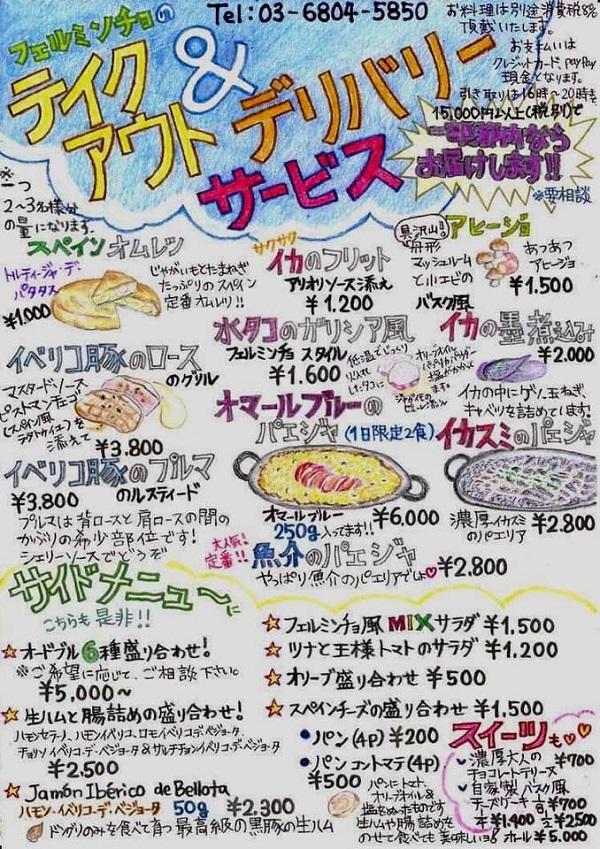 Tel:03-6804-5850
お料理は別途消費税8%
頂戴いたします。
お支払いは
クレジットカード、PayPay
現金となります。
引き取りは16時〜20時まで
フェルミンチョの
テイク
アウト
&
デリバリー
サービス
15,000円以上(税別)で
お届けします!!
※要相談
※一つ
2〜3名様分
の量になります。
スペインオムレツ
トルティージャ・デ・
パタタス
¥1.000
じゃがいもとたまねぎ
たっぷりのスペイン
定番オムレツ!!
サクサク
イカのフリット
アリオリソース添え
¥1.200
具沢山!!
アヒージョ
マッシュルーム
と小エビの
バスク風
あつあつ
アヒージョ
¥1.500
水タコのガリシア風
フェルミンチョ スタイル
¥1.600
イカの墨煮込み
¥2.000
イカの中にゲソ、玉ねぎ、
キャベツを詰めてます!
イベリコ豚のロース
のグリル
マスタードソース
ピストマンチェゴ
(スペイン風
ラタトゥイユ)を
添えて
¥3.800
オマールブルーの
パエジャ(1日限定2食)
オマールブルー
250g入ってます!!
¥6.000
イカスミのパエジャ
濃厚イカスミ
のパエリア
¥2.800
イベリコ豚のプルマ
のルスティード
¥3.800
プルマは背ロースと肩ロースの間の
かぶりの希少部位です!
シェリーソースでどうぞ
大人気!
定番!!
魚介のパエジャ
やっぱり魚介のパエリアでしょ
¥2.800
サイドメニュ〜に
こちらも是非!!
オードブル6種盛り合わせ!
※ご希望に応じて、ご相談下さい。
¥5,000〜
生ハムと腸詰めの盛り合わせ!
ハモンセラーノ、ハモンイベリコ、ロモイベリコ・デ・ベジョータ、
チョリソイベリコ・デ・ベジョータ&サルチチョンイベリコ・デ・ベジョータ
¥2.500
Jamón Ibérico de Bellota
ハモン・イベリコ・デ・ベジョータ 50g ¥2,300
ドングリのみを食べて育つ最高級の黒豚の生ハム
フェルミンチョ風MIXサラダ ¥1.500
ツナと王様トマトのサラダ ¥1.200
オリーブ盛り合わせ ¥500
スペインチーズの盛り合わせ ¥1,500
パン(4P) ¥200
パンコントマテ(4P)
¥500
パンにトマト、
オリーブオイル&
塩をぬったものです
生ハムや腸詰めを
のせて食べても美味しいヨ!
スイーツも
濃厚大人の
チョコレートテリーヌ ¥700
自家製バスク風
チーズケーキ
¥700
¥1.400
¥2500
ホール¥5.000